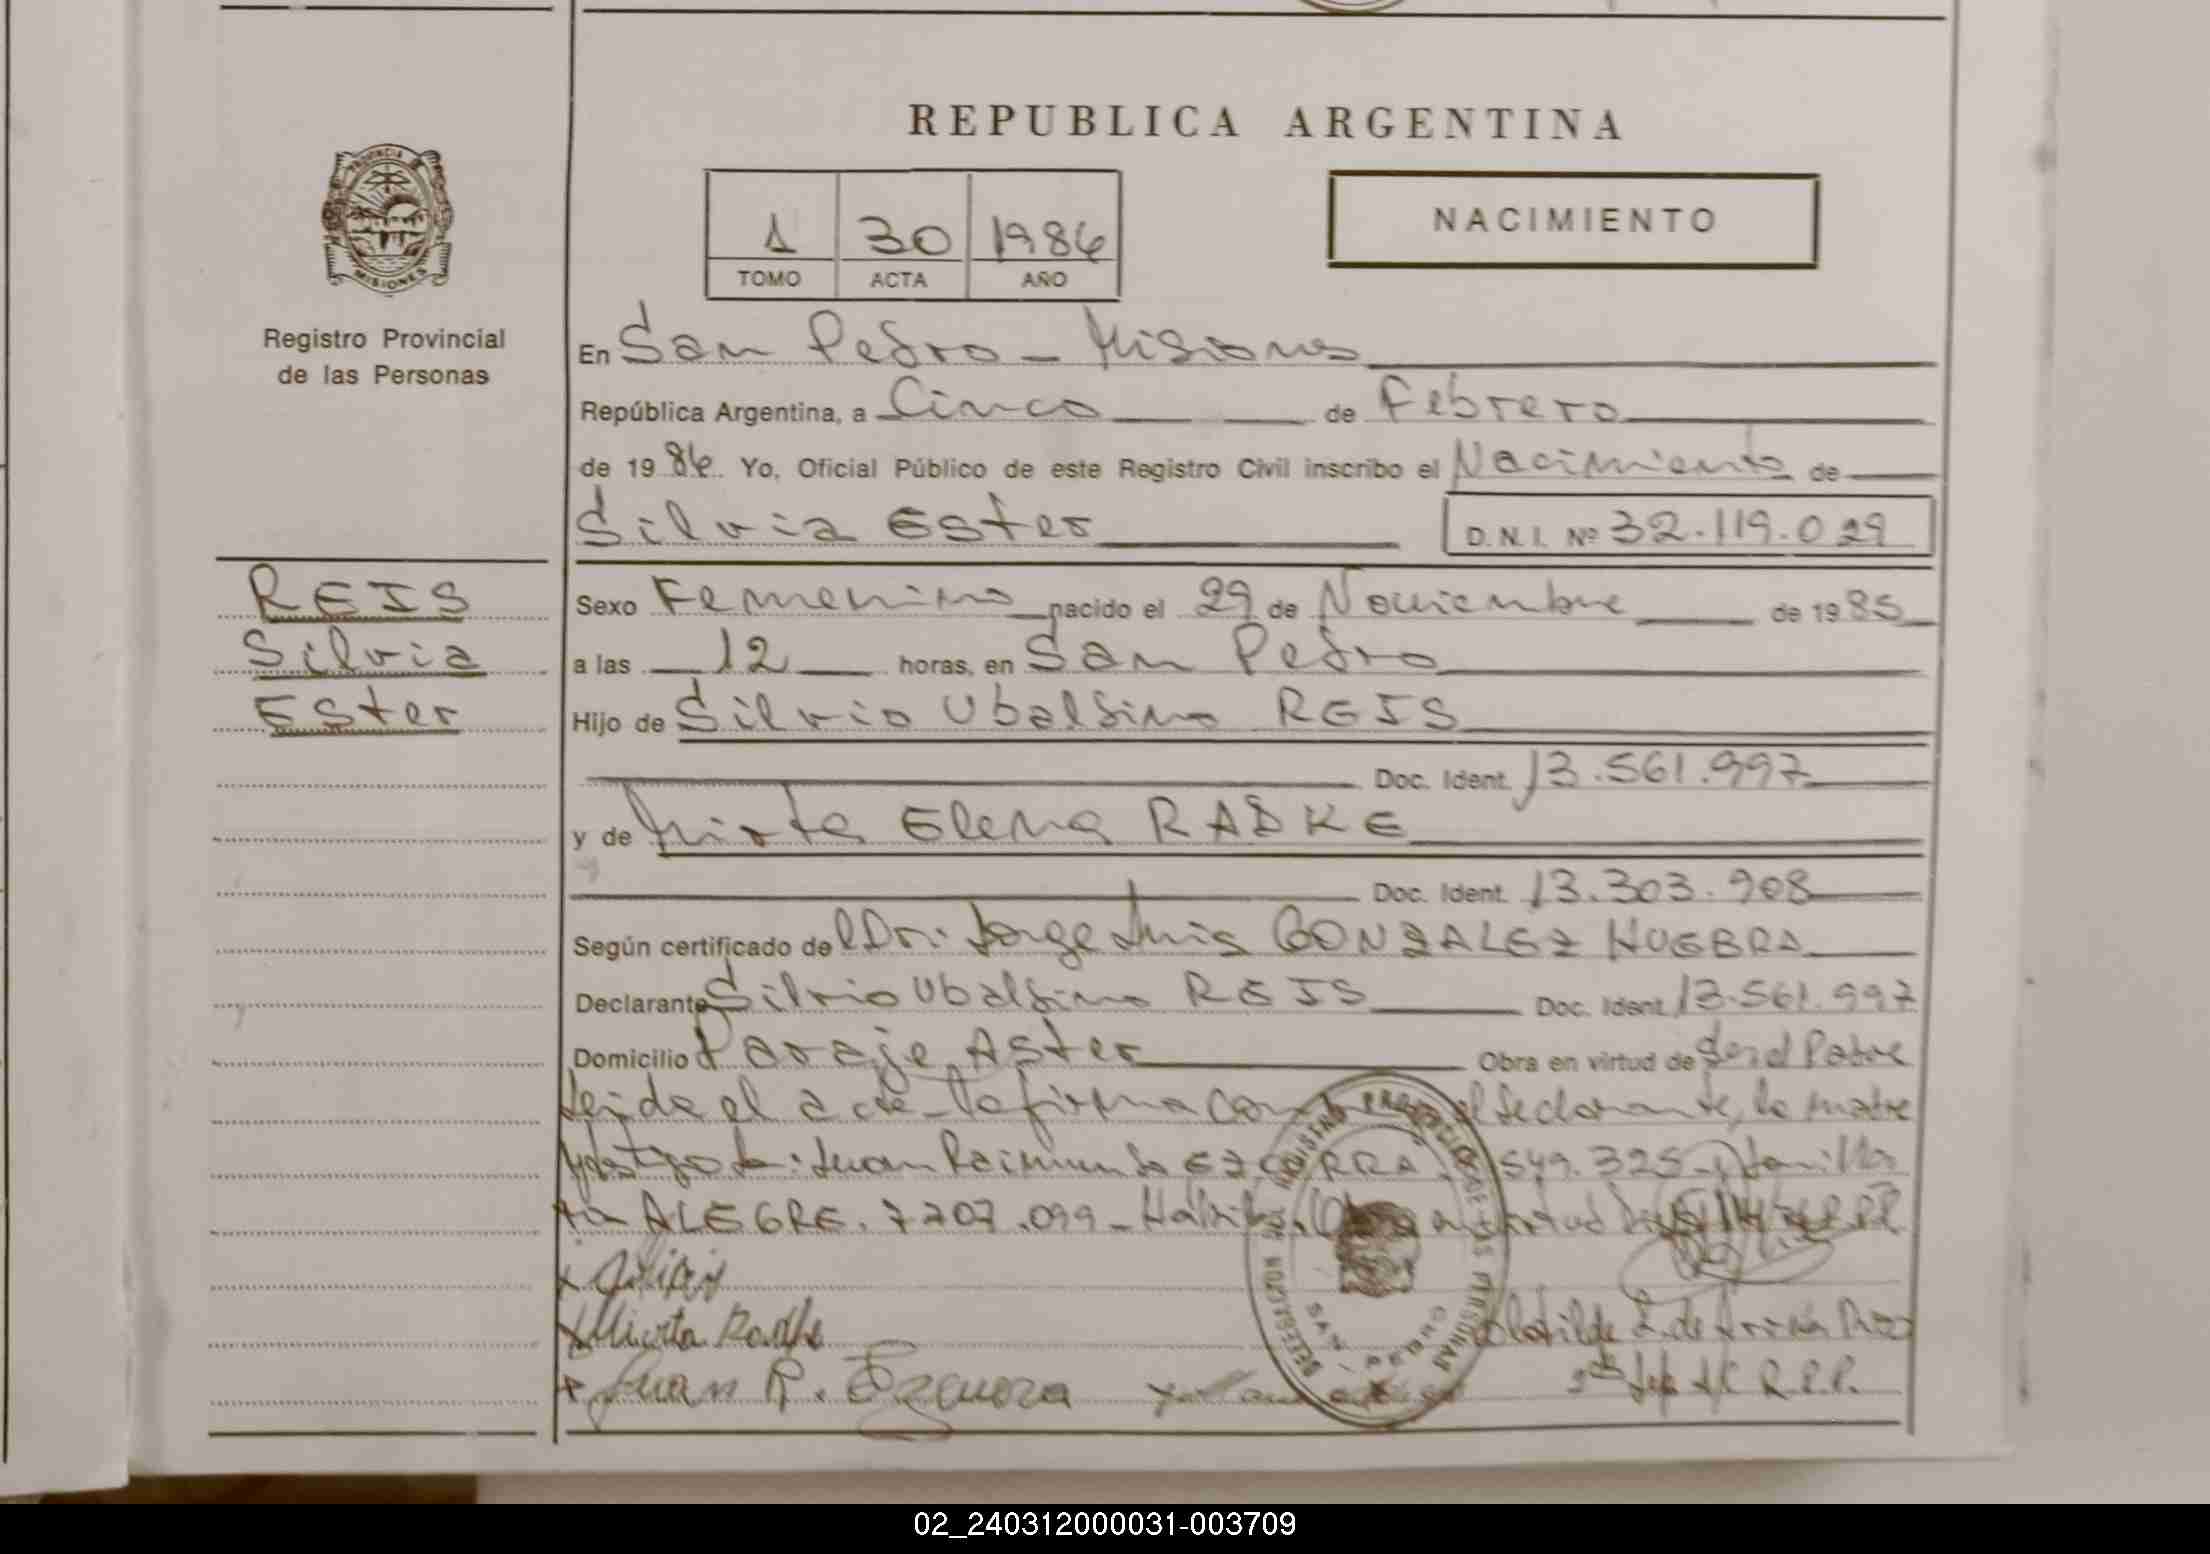 REPUBLICA ARGENTINA
PROVINCIA
MISIONES
Registro Provincial
de las Personas
1 30 1986
TOMO ACTA AÑO
NACIMIENTO
En San Pedro - Misiones
República Argentina, a Cinco de Febrero
de 1986. Yo, Oficial Público de este Registro Civil inscribo el Nacimiento de
Silvia Ester
D.N.I. Nº 32.119.029
REIS
Silvia
Ester
Sexo Femenino nacido el 29 de Noviembre de 1985
a las 12 horas, en San Pedro
Hijo de Silvio Ubaldino REIS
Doc. Ident. 13.561.997
y de Mirta Elena RADKE
Doc. Ident. 13.303.908
Según certificado de Dr. Jorge Luis GONZALEZ HUEBRA
Declarante Silvio Ubaldino REIS Doc. Ident. 13.561.997
Domicilio Paraje Aster Obra en virtud de Ser el Padre
Leida el acta la firma el declarante, la madre
y testigos Juan Raimundo EZCURRA 549.325
ALEGRE. 7707.099
Mirta Radke
Juan R. Ezcurra
R.P.P.